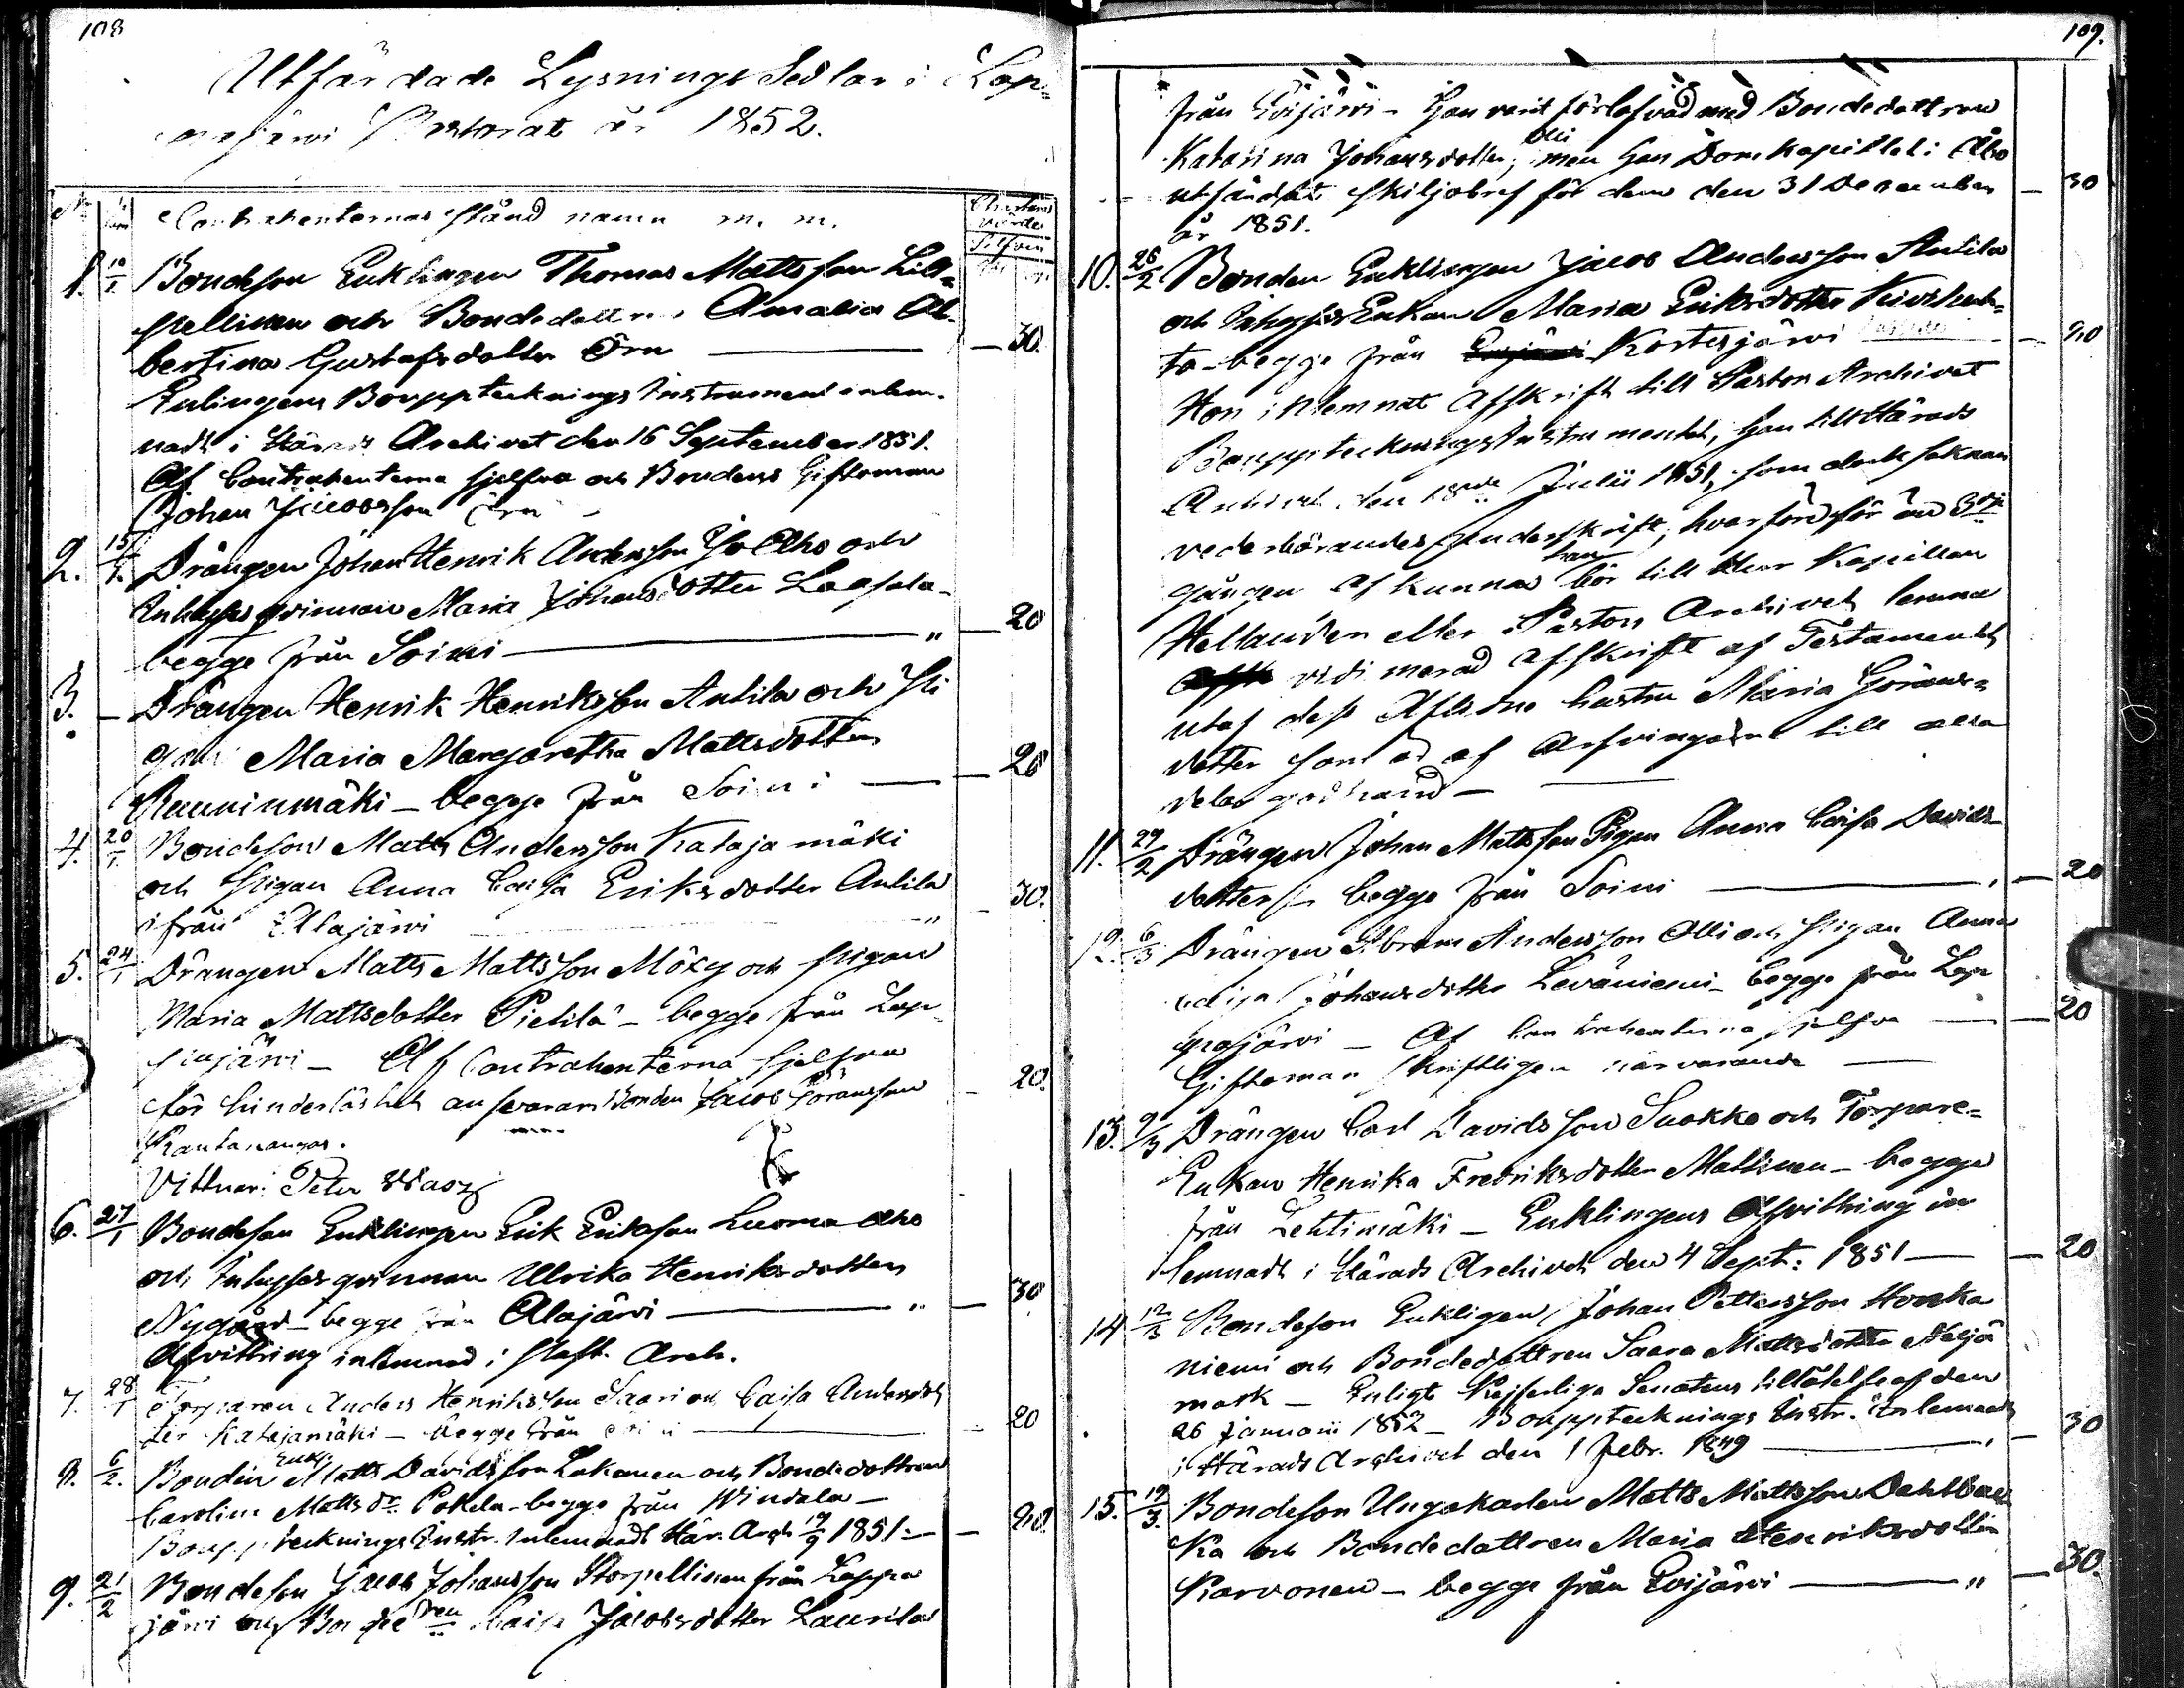 108
Utfärdade Lysnings Sedlar i Lap=
pajärvi Pastorat år 1852.
No Contrahenternas stånd namn m. m. Chartæ värde Silfver
1. 10/1 Bondeson Enklingen Thomas Mattsson Lill=
pellinen och Bondedottren Amalia Al=
bertina Gustafsdotter Örn — 30.
Enlingens Bouppteknings Instrument inlem=
nadt i Härads Archivet den 16 September 1851.
Af Contrahenterna sjelfva och Brudens Giftoman
Johan Jacobsson Örn
2. 15/1 Drängen Johan Henrik Andersson Yli Aho och
Inhyses qvinnan Maria Johansdotter
begge från Soini — " — 20
3. — Drängen Henrik Henriksson Antila och Pi
gan Maria Margaretha Mattsdotter
Rauninmäki — begge från Soini — 20
4. 20/1 Bondeson Matts Andersson Katajamäki
och Pigan Anna Caisa Eriksdotter Antila
ifrån Alajärvi — " — 30.
5. 24/1 Drängen Matts Mattsson Möxy och pigan
Maria Mattsdotter Pietilä — begge från Lap
pajärvi — Af Contrahenterna sjelfva
för hinderlöshet ansvarar Bonden Jacob Göransson — 20.
Rantakangas.
Vittnar: Peter Wasz
6. 27/1 Bondeson Enklingen Erik Eriksson Luoma aho
och Inhyses qvinnan Ulrika Henriksdotter
Nygård — begge från Alajärvi — " — 30
Afvittring inlemnad i Past. Arch.
7. 28/1 Torparen Anders Henriksson Saari och Caisa Andersdot
ter Katajamäki — begge från Soini — 20
8. 6/2. Bonden Enkl. Matts Davidsson Lakanen och Bondedottren
Carolina Matts dr Pokela — begge från Windala —
Bouppteknings Instr. inlemnadt Här. Arch 19/9 1851 — 20.
9. 21/2 Bondeson Jacob Johansson Storpellinen från Lappa
järvi och Bonded:ren Caisa Jacobsdotter Laurila
109.
från Evijärvi — Han varit förlofvad med Bondedottren
Katarina Johansdotter Olli, men har Domkapitlet i Åbo
utfärdat skiljobref för dem den 31 December — 30
år 1851.
10. 26/2 Bonden Enklingen Jacob Andersson Antila
och Inhyses Enkan Maria Eriksdotter Kivihuh=
ta — begge från Kortesjärvi — 20
Hon inlemnat Afskrift till Pastors Archivet
Bouppteckningsinstrumentet, han till Härads
Archivet den 18de Julii 1851, som dock saknar
vederbörandes underskrift, hvarföre för än 3dje
gången af kunnas han bör till Herr Kapellan
Hellandén eller Pastors Archivet lemna
vidimerad afskrift af Testamentet
utaf dess Aflidne hustru Maria Görans=
dotter som är af Arfvingarne till alla
delar godkänd —
11. 29/2 Drängen Johan Mattsson Pigan Anna Caisa Davids=
dotter begge från Soini — 20
12. 6/3 Drängen Abram Andersson Olli och Pigan Anna
Caisa Johansdotter Leväniemi — begge från Lap
pajärvi — Af Contrahenterna sjelfva — 20
Giftoman skriftligen närvarande —
13. 9/3 Drängen Carl Davidsson Suokko och Torpare=
Enkan Henrika Fredriksdotter Mattinen — begge
från Lehtimäki — Enklingens Afvittring in
lemnadt i Härads Archivet den 4 Sept: 1851 — 20
14. 12/3 Bondeson Enklingen Johan Pettersson Honka
niemi och Bondedottren Saara Mattsdotter Neljä
mark — Enligt Kejserliga Senatens tillåtelse af den
26 Januarii 1852 — Bouppteknings Instr. inlemnadt
i Härads Archivet den 1 Febr. 1849 — 30
15. 19/3. Bondeson Ungakarlen Matts Mattsson Dahlbac
ka och Bondedottren Maria Henriksdotter
Karvonen — begge från Evijärvi — " — 30.